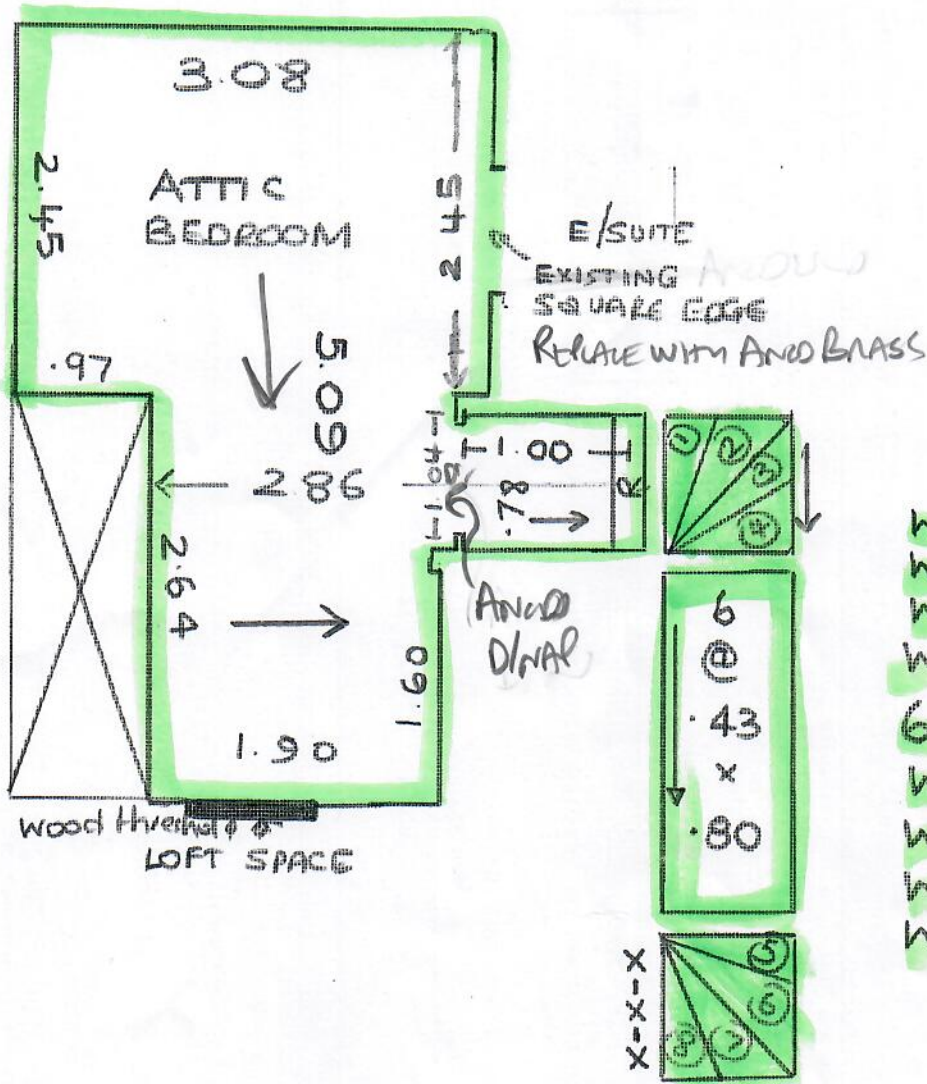 3.08
2.45
ATTIC
BEDROOM
2.45
E/SUITE
EXISTING
SQUARE EDGE
REPLACE WITH ANCO BRASS
.97
5.09
1.00
R
2.86
1.04
.78
2.64
ANCO
D/NAP
1.60
1.90
wood threshold
LOFT SPACE
① ② ③ ④
6
@
.43
x
.80
⑤
⑥
⑦
⑧
X-X-X